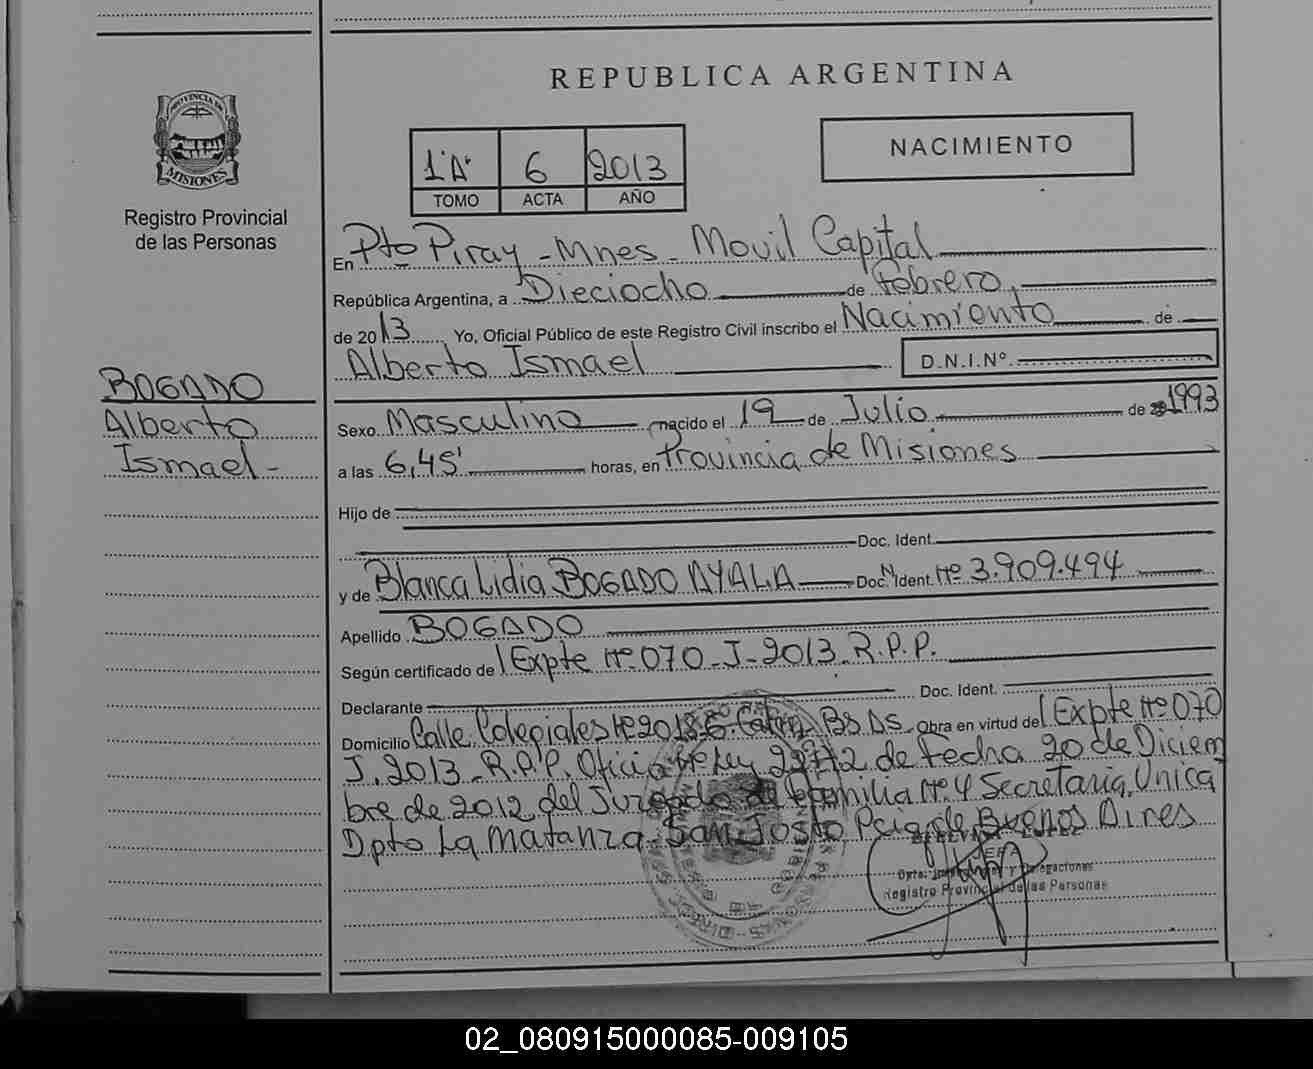 REPUBLICA ARGENTINA
PROVINCIA DE
MISIONES
Registro Provincial
de las Personas
1°"A" 6 2013
TOMO ACTA AÑO
NACIMIENTO
En Pto Piray - Mnes - Movil Capital
República Argentina, a Dieciocho de Febrero
de 2013 Yo, Oficial Público de este Registro Civil inscribo el Nacimiento de
Alberto Ismael D.N.I.Nº
BOGADO
Alberto
Ismael -
Sexo Masculino nacido el 19 de Julio de 1993
a las 6,45' horas, en Provincia de Misiones
Hijo de
Doc. Ident.
y de Blanca Lidia BOGADO AYALA Doc. Ident. Nº 3.909.494
Apellido BOGADO
Según certificado de Expte Nº 070-J-2013-R.P.P.
Declarante Doc. Ident.
Domicilio Calle Colegiales Nº 2018 Bs As Obra en virtud del Expte Nº 070
J. 2013-R.P.P. Oficio Ley 22172 de Fecha 20 de Diciem
bre de 2012 del Juzgado de Familia Nº 4 Secretaria Unica
Dpto La Matanza San Justo Pcia de Buenos Aires
JEFE
Registro Provincial de las Personas
02_080915000085-009105